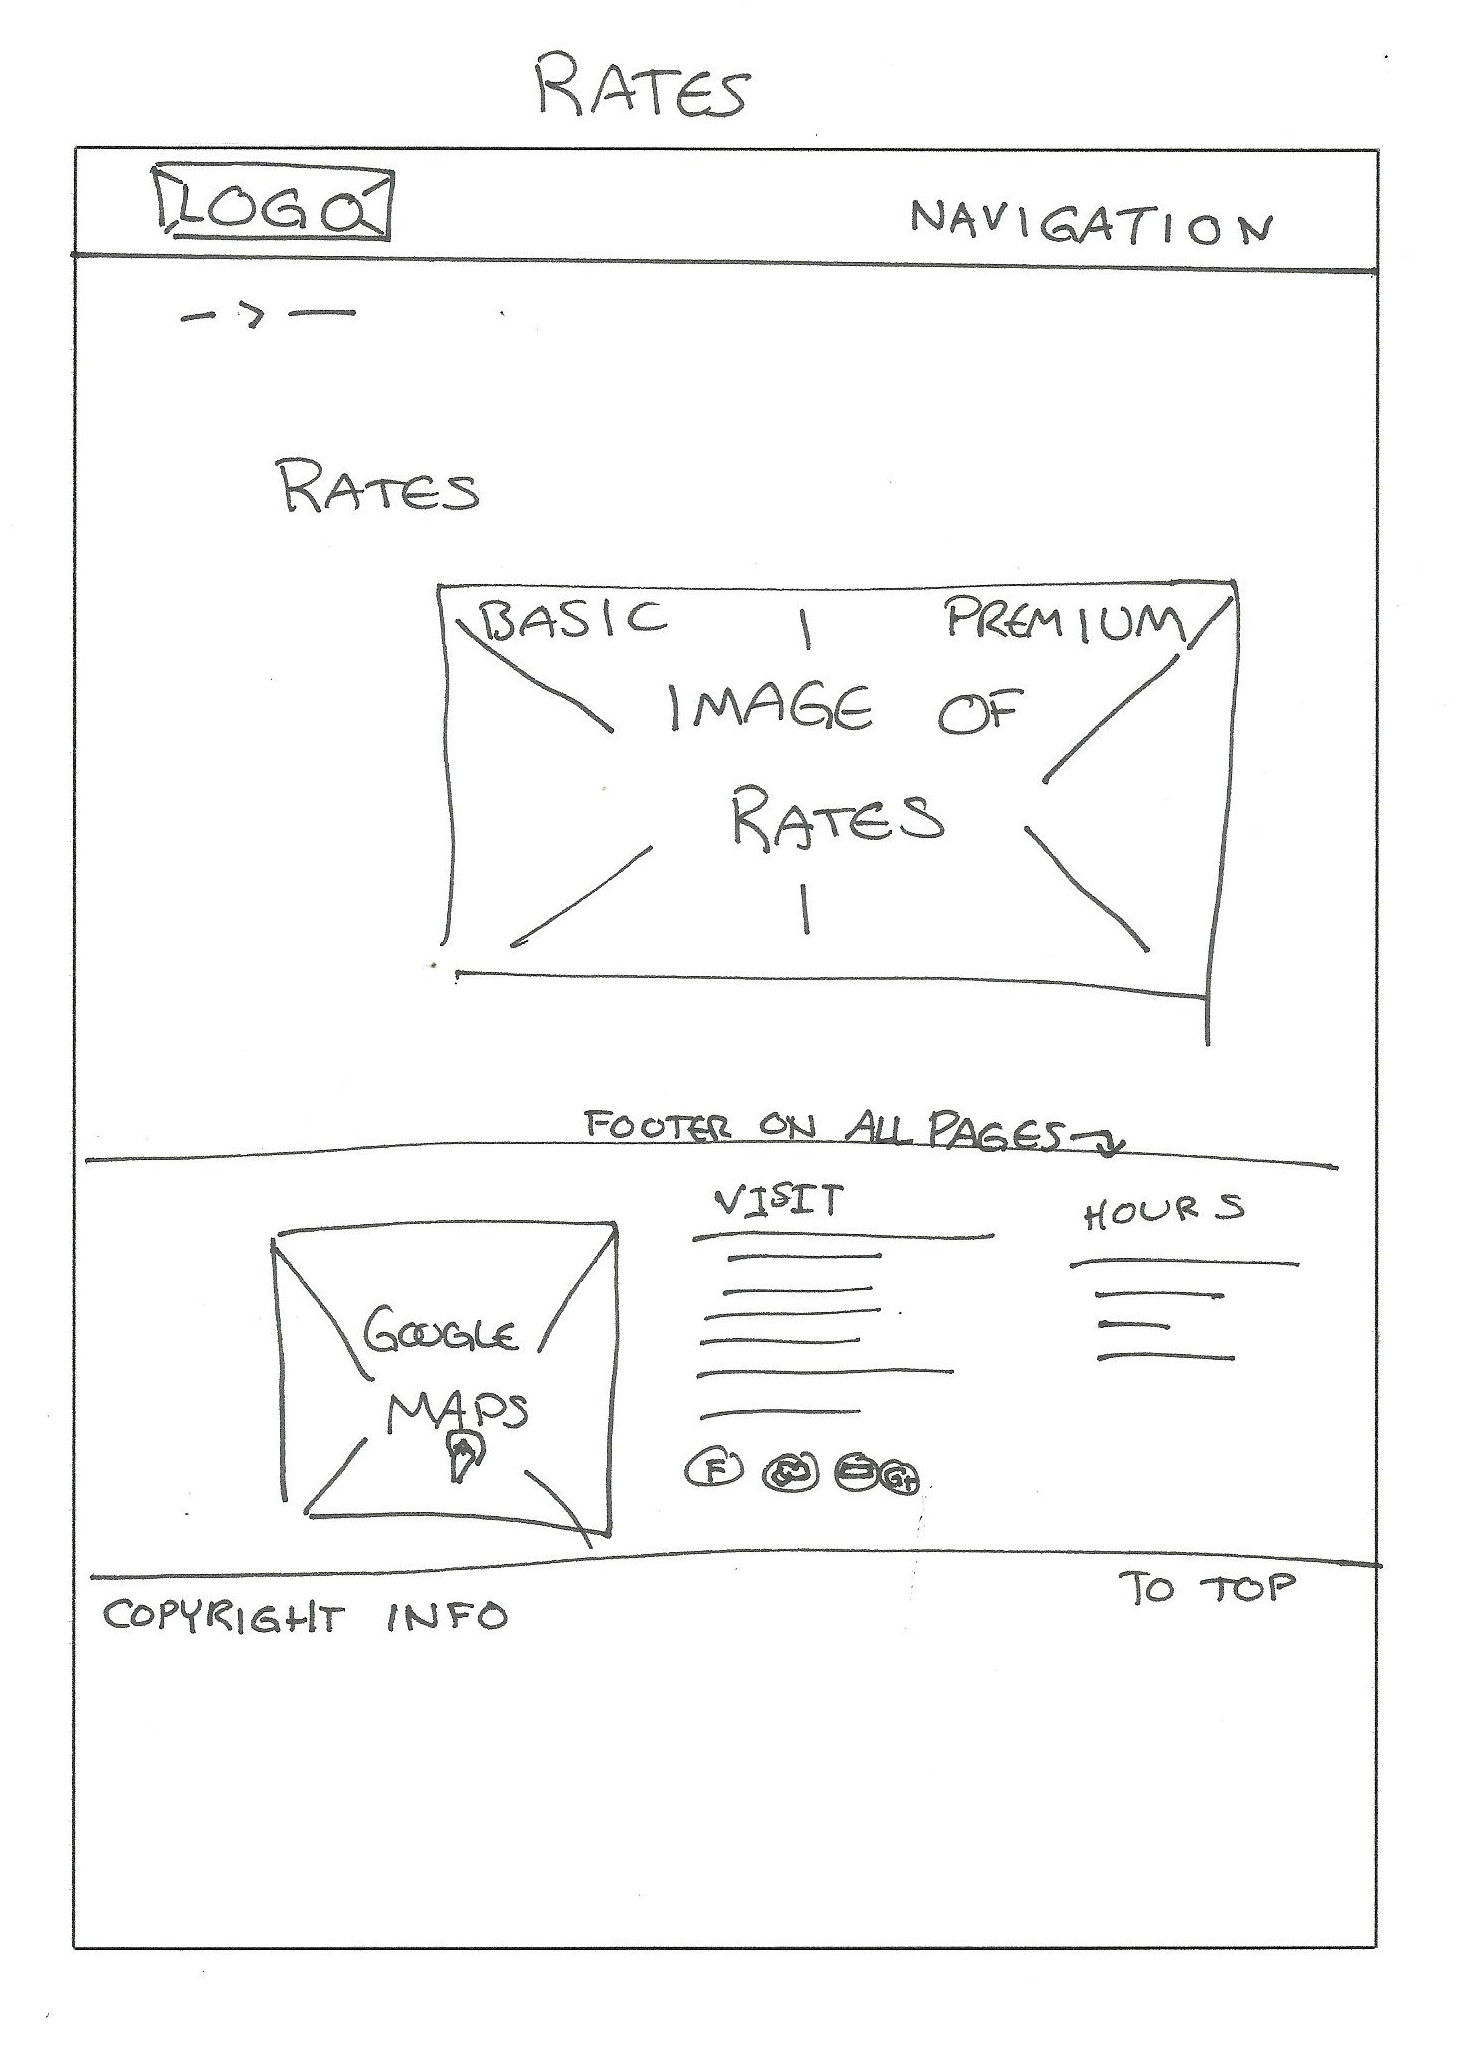 RATES
LOGO
NAVIGATION
RATES
BASIC PREMIUM
IMAGE OF
RATES
FOOTER ON ALL PAGES
VISIT
HOURS
GOOGLE
MAPS
F G+
TO TOP
COPYRIGHT INFO